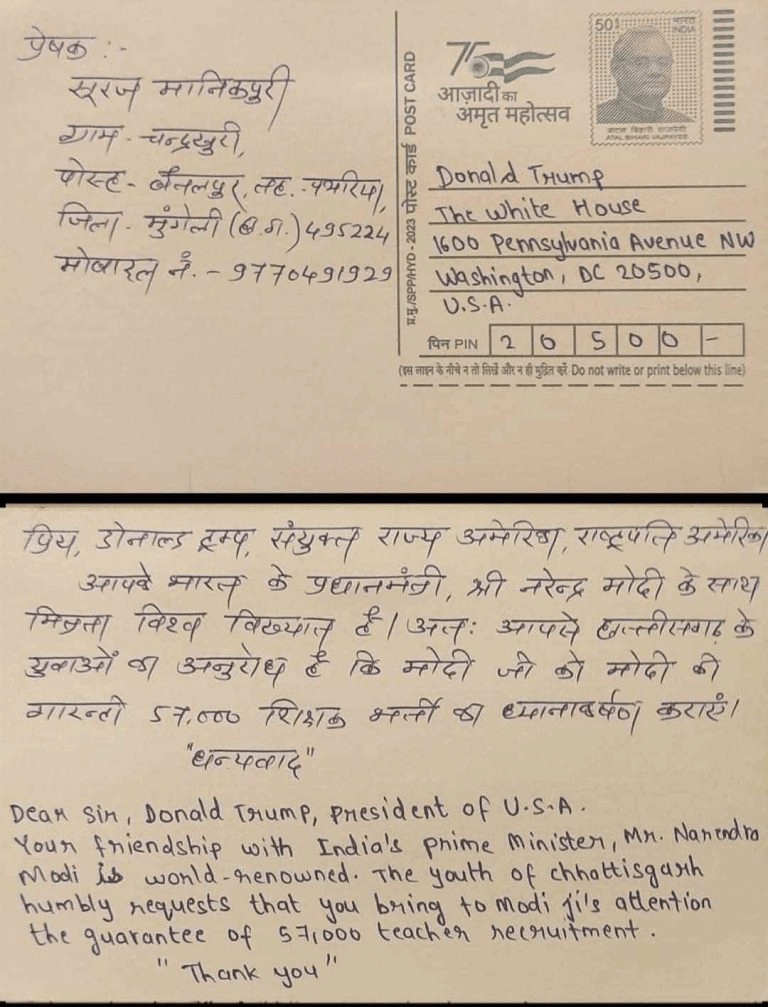 प्रेषक :-
सूरज मानिकपुरी
ग्राम - चन्द्रखुरी,
पोस्ट- बैतलपुर, तह. - पथरिया,
जिला - मुंगेली (छ.ग.) 495224
मोबाइल नं. - 9770491929
75
आज़ादी का
अमृत महोत्सव
50
भारत
INDIA
अटल बिहारी वाजपेयी
ATAL BIHARI VAJPAYEE
प्र.मु./SPP/HYD-2023 पोस्ट कार्ड POST CARD
Donald Trump
The White House
1600 Pennsylvania Avenue NW
Washington, DC 20500,
U.S.A.
पिन PIN 2 0 5 0 0 -
(इस लाइन के नीचे न तो लिखें और न ही मुद्रित करें Do not write or print below this line)
प्रिय, डोनाल्ड ट्रम्प, संयुक्त राज्य अमेरिका, राष्ट्रपति अमेरिका
आपके भारत के प्रधानमंत्री, श्री नरेन्द्र मोदी के साथ
मित्रता विश्व विख्यात है। अतः आपसे छत्तीसगढ़ के
युवाओं का अनुरोध है कि मोदी जी को मोदी की
गारन्टी 57,000 शिक्षक भर्ती का ध्यानाकर्षण कराएं।
"धन्यवाद"
Dear Sir, Donald Trump, president of U.S.A.
Your friendship with India's prime Minister, Mr. Narendra
Modi is world-renowned. The youth of chhattisgarh
humbly requests that you bring to Modi ji's attention
the guarantee of 57,000 teacher recruitment.
"Thank you"